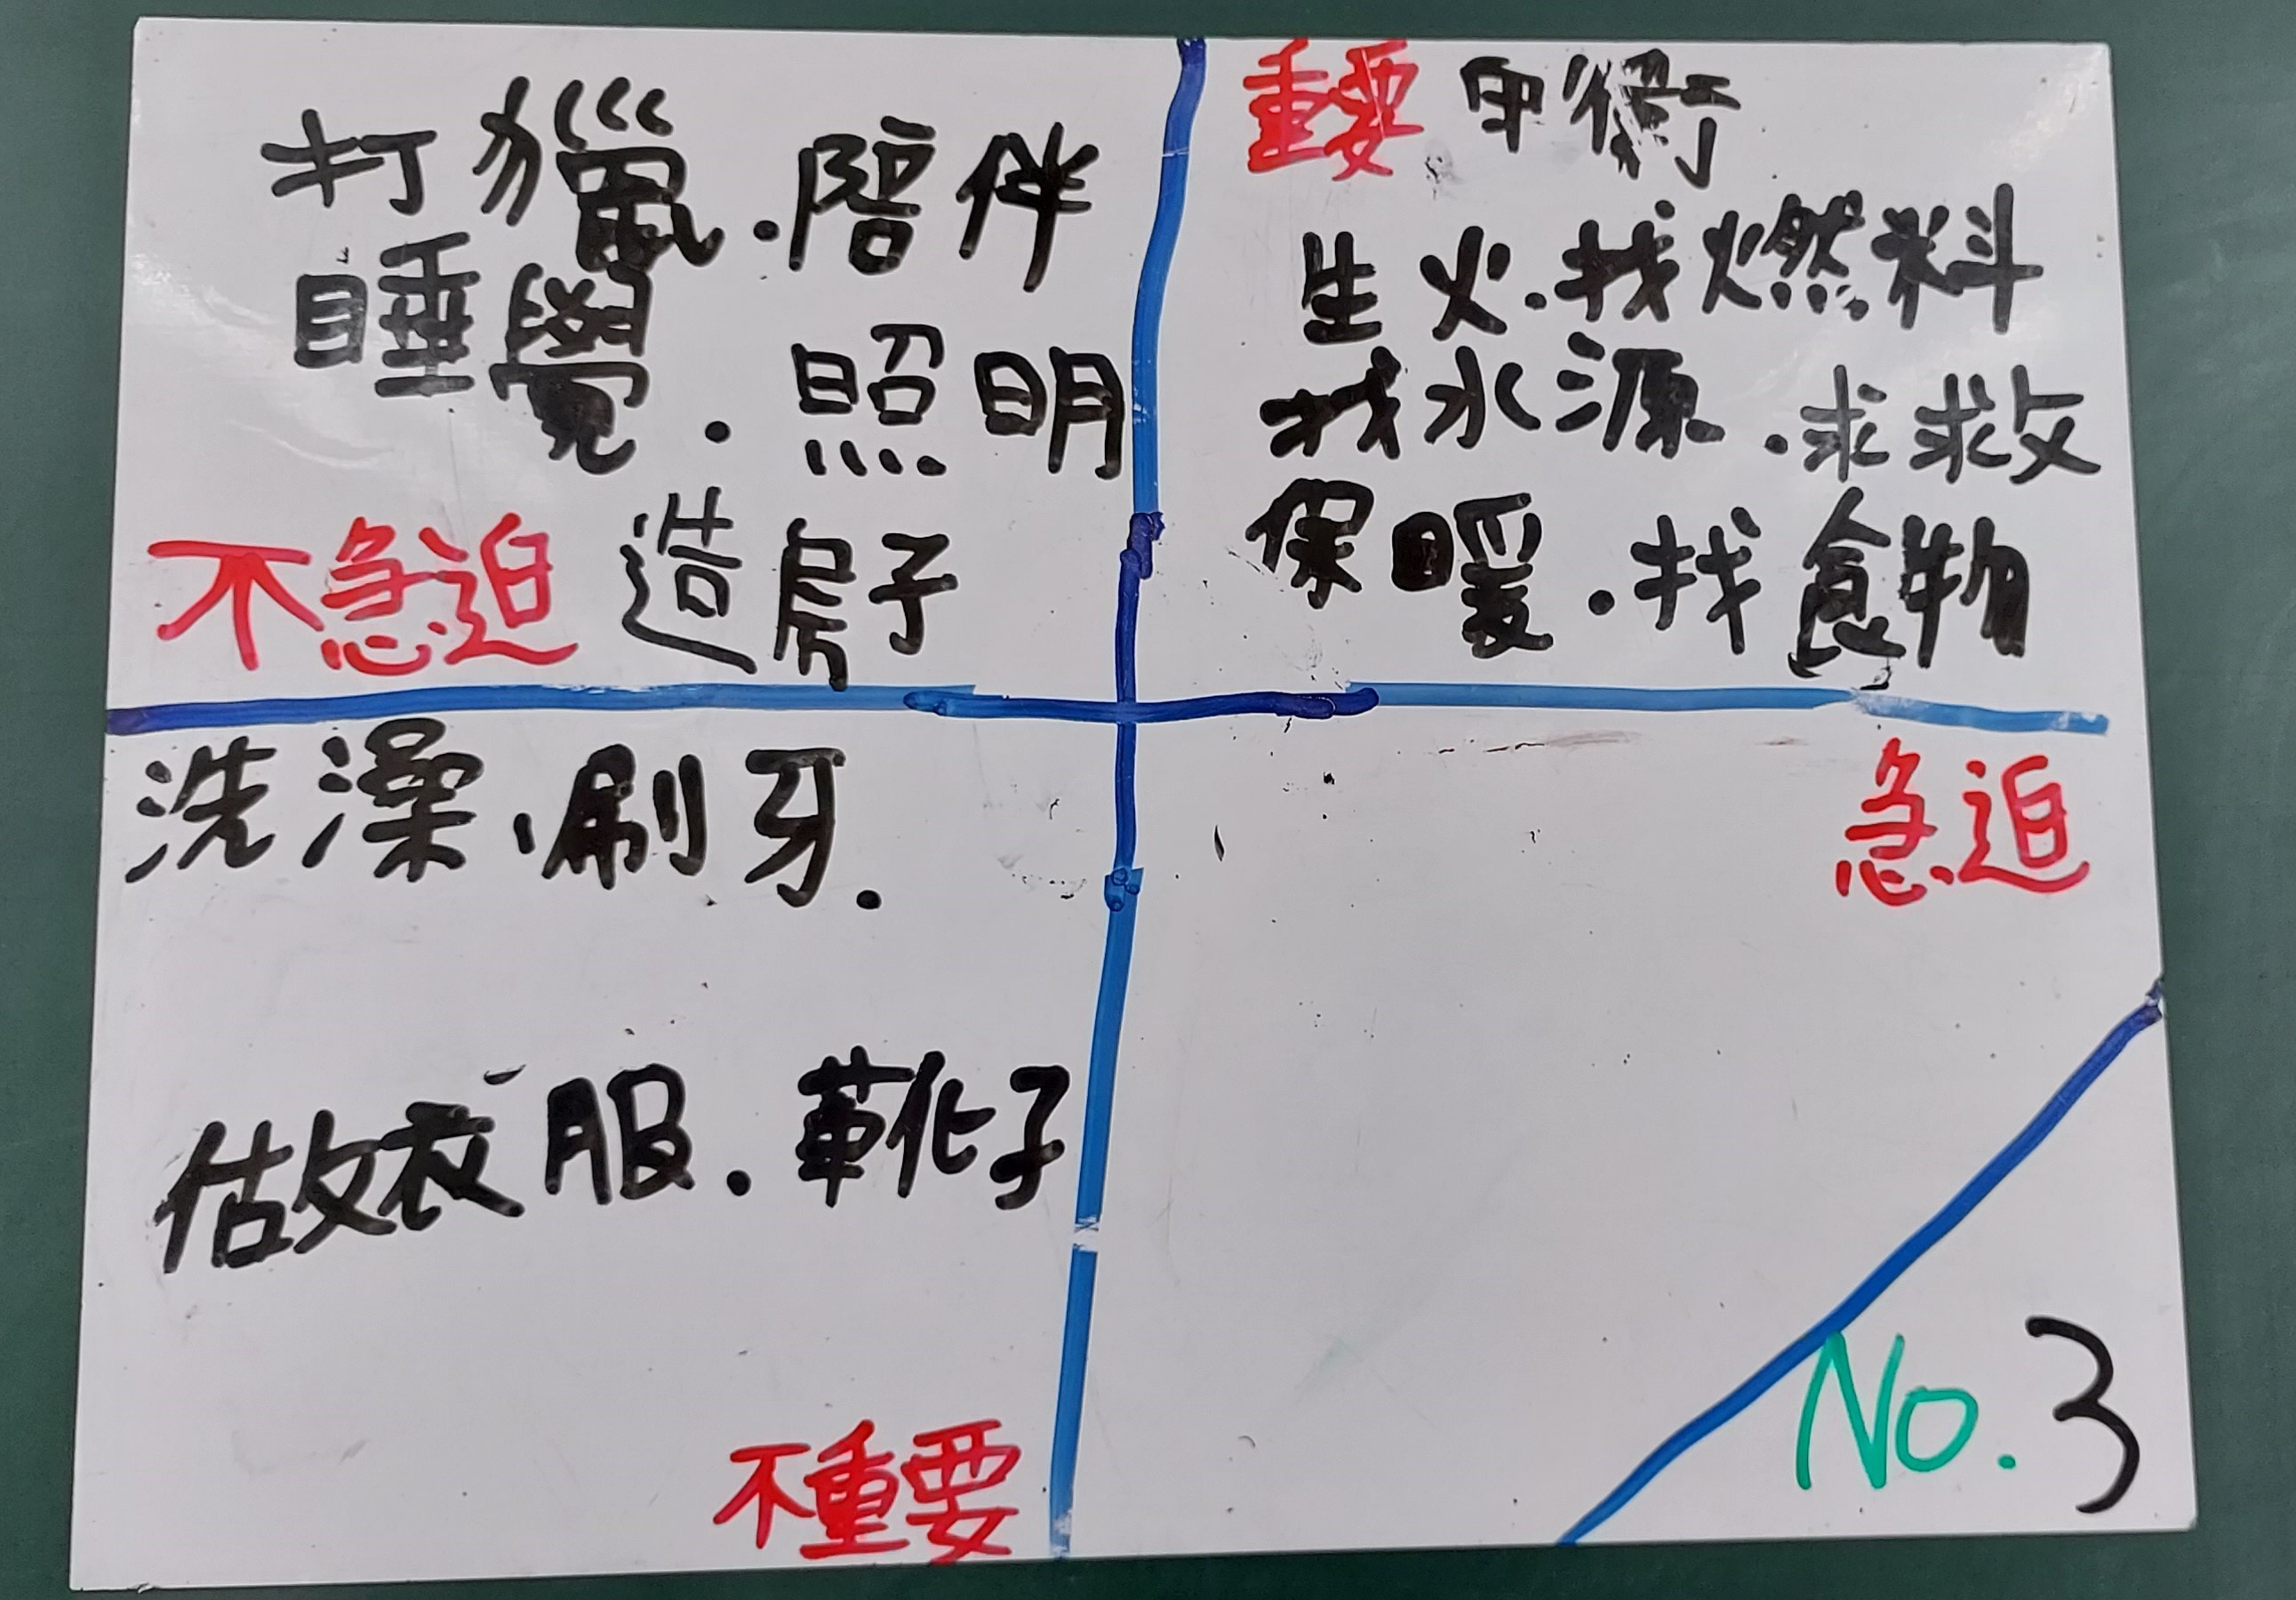 打獵.陪伴
睡覺.照明
不急迫 造房子
重要
生火.找燃料
找水源.求救
保暖.找食物
洗澡、刷牙.
做衣服.靴子
不重要
急迫
No.3